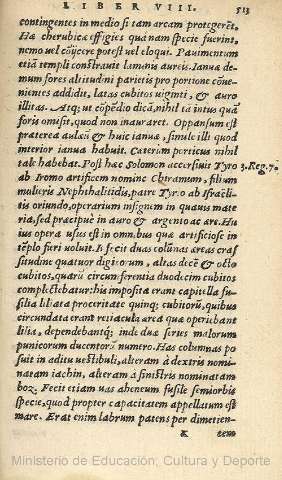 LIBER VIII. 513
contingentes in medio si tam arcam protegerēt.
Hæ cherubicæ effigies qua nam specie fuerint,
nemo vel cōÿcere potest vel eloqui. Pauimentum
etiā templi constrauit laminis aureis. Ianuæ de-
mum fores altitudini parietis pro portione conue-
nientes addidit, latas cubitos viginti, & auro
illitas. Atq; ut cōpēdio dicā, nihil tā intus quā
foris omisit, quod non inauraret. Oppansum est
præterea aulæū & huic ianuæ, simile illi quod
interior ianua habuit. Cæterùm porticus nihil
tale habebat. Post hæc Solomon accersiuit Tyro 3. Reg. 7.
ab Iromo artificem nomine Chiramum, filium
mulieris Nephthalitidis, patre Tyro ab Israëli-
tis oriundo, operarium insignem in quauis mate
ria, sed præcipuè in auro & argento ac ære. Hu
ius opera usus est in omnibus quæ artificiose in
tēplo fieri voluit. Is fecit duas colūnas æreas craf
situdine quatuor digitorum, altas decē & octo
cubitos, quarū circunferentia duodecim cubitos
complectebatur: his imposita erant capitella fu-
silia liliata proceritate quinq; cubitorū, quibus
circundata erant retiacula ærea quæ operiebant
lilia, dependebantq; inde duæ series malorum
punicorum ducentorū numero. Has columnas po
suit in aditu vestibuli, alteram à dextris nomi-
natam iachin, alteram à sinistris nominatam
boz. Fecit etiam uas aheneum fusile semiorbis
specie, quod propter capacitatem appellatum est
mare. Erat enim labrum patens per dimetien-
K tem
Ministerio de Educación, Cultura y Deporte